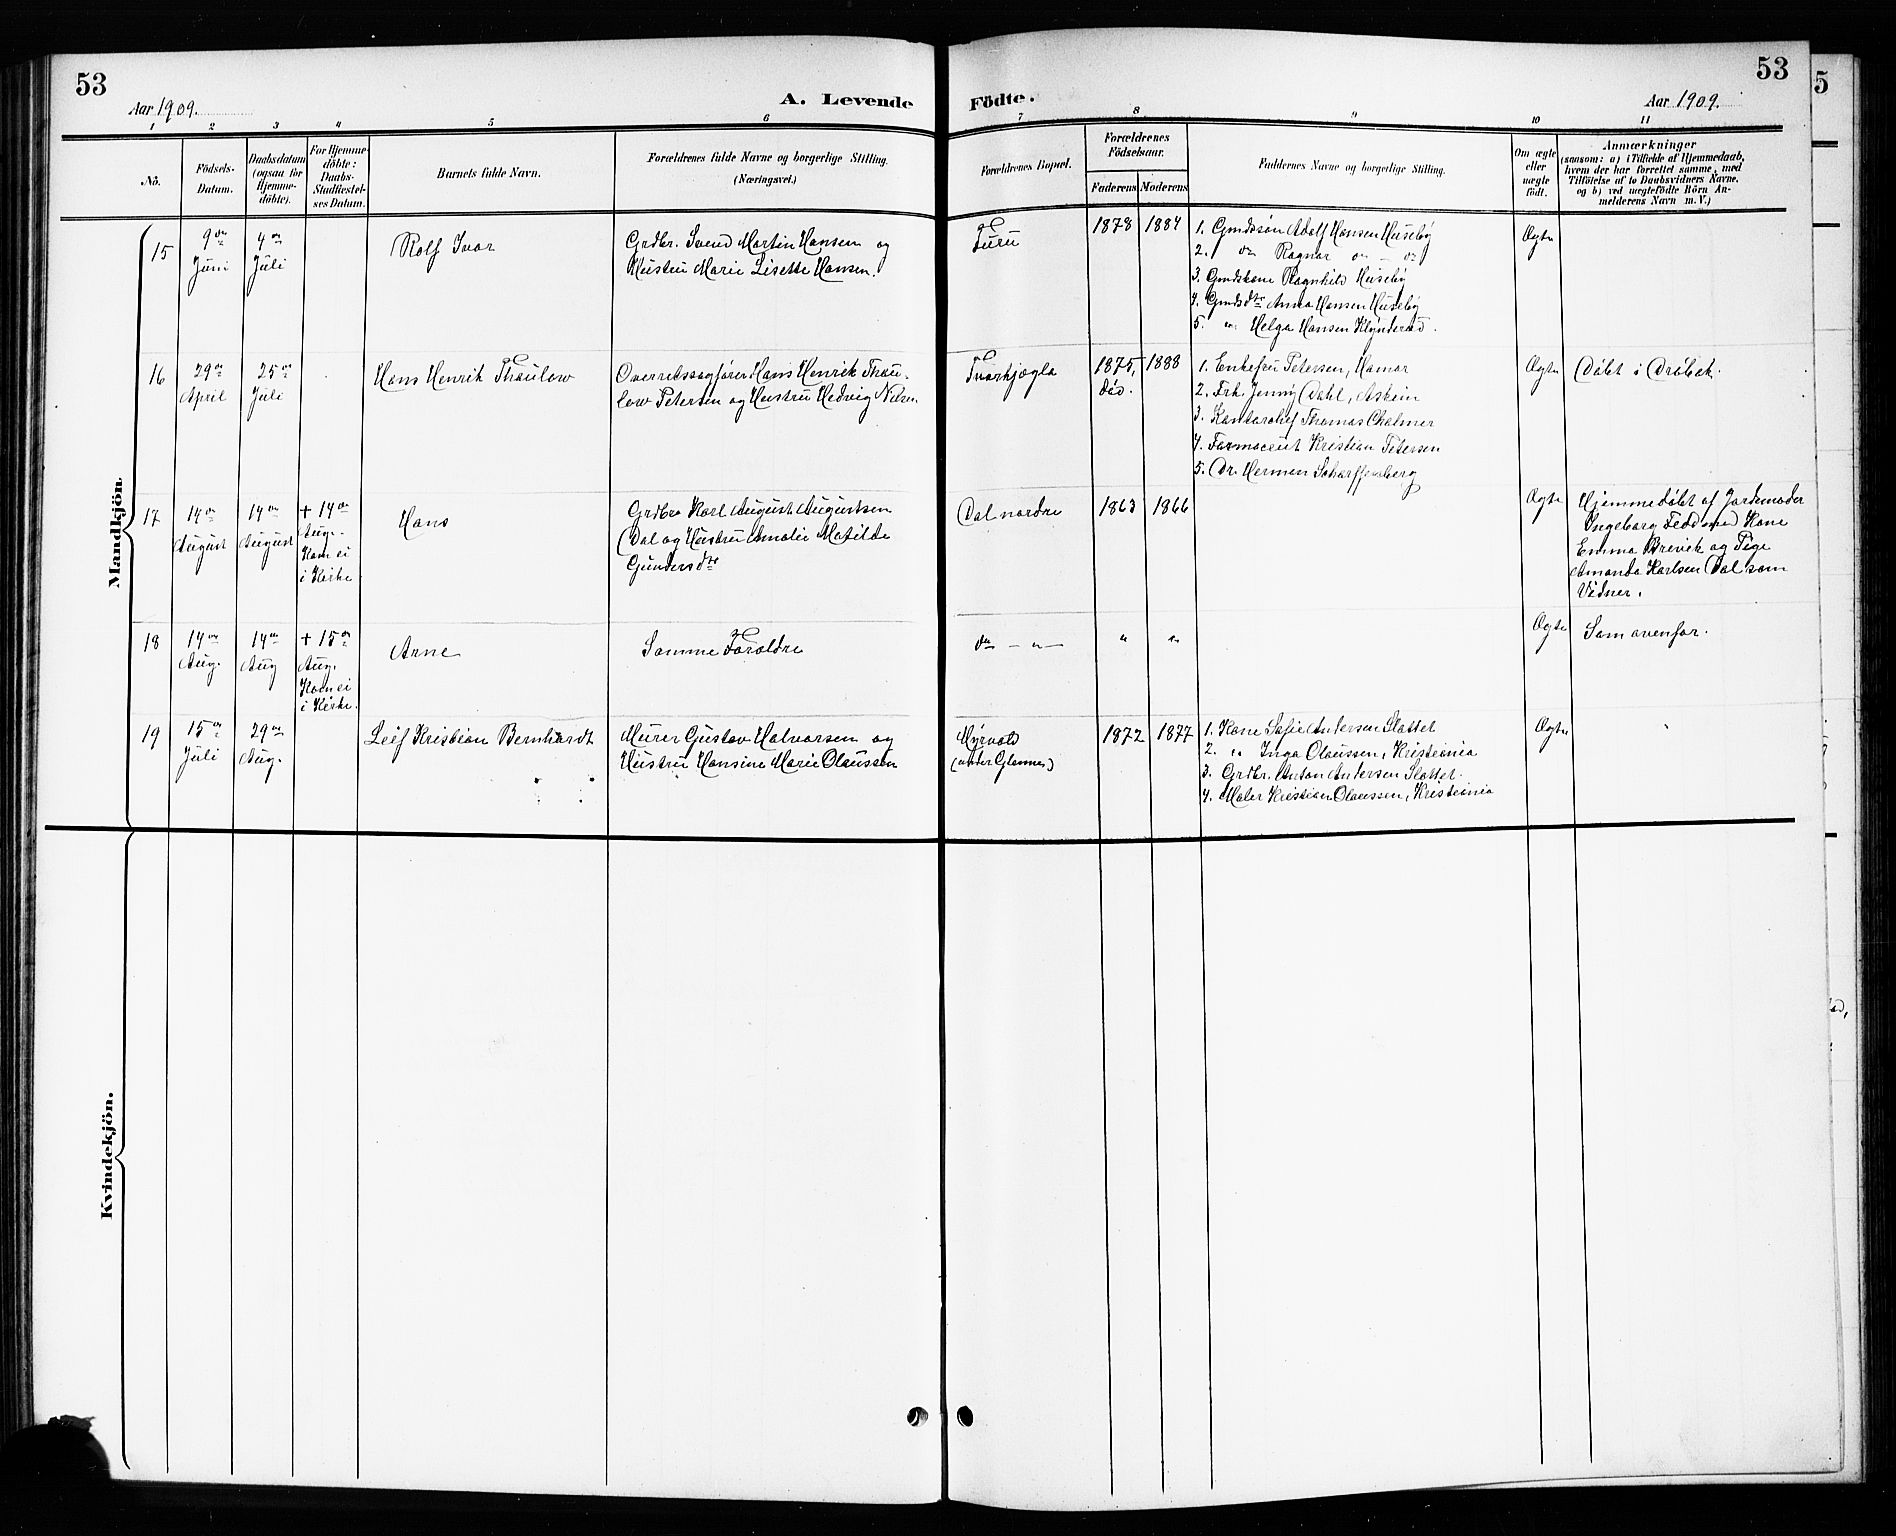 53
Aar 1909.
A. Levende
Födte.
Aar 1909.
53
5
1
2
3
4
5
6
7
8
9
10
11
No.
Födsels-
Datum.
Daabsdatum
(ogsaa for
Hjemme-
döbte).
For Hjemme-
döbte:
Daabs-
Stadfæstel-
ses Datum.
Barnets fulde Navn.
Forældrenes fulde Navne og borgerlige Stilling.
(Næringsvei.)
Forældrenes Bopæl.
Forældrenes
Födselsaar.
Faderens
Moderens
Faddernes Navne og borgerlige Stilling.
Om ægte
eller
uægte
födt.
Anmærkninger
(saasom: a) i Tilfælde af Hjemmedaab,
hvem der har forrettet samme, med
Tilföielse af to Daabsvidners Navne,
og b) ved uægtefödte Börn An-
melderens Navn m. V.)
Mandkjön
15
9de
Juni
4de
Juli
Rolf Ivar
Grdbr. Svend Martin Hansen og
Hustru Marie Lisette Hansen.
1878
1884
1. Gmdssøn Adolf Hansen Huseby
2. do Ragnar do - do
3. Gmdskone Ragnhild Huseby
4. Gmdsdtr Anna Hansen Huseby
5. do Helga Hansen
Ægte
16
29de
April
25de
Juli
Hans Henrik Thaulow
Overretssagfører Hans Henrik Thau-
low Petersen og Hustru Hedvig
Tværkjægla
1875,
død.
1888
1. Enkefru Petersen, Hamar
2. Frk. Jenny Dahl, Askim
3. Kontorchef Thomas Chalmer
4. Farmaceut Kristian Petersen
5. Dr. Herman Scharffenberg
Ægte
Døbt i Drøbak.
17
14de
August
14de
August
+ 14de
Aug.
Kom ei
i Kirke
Hans
Grdbr. Karl August Augustsen
Dal og Hustru Amalie Matilde
Gundersdtr
Dal nordre
1863
1866
Ægte
Hjemmedøbt af Jordemoder
Ingeborg Fedd med Kone
Emma Brevik og Pige
Amanda Karlsen Dal som
Vidner.
18
14de
Aug.
14de
Aug
+ 15de
Aug.
Kom ei
i Kirke.
Arne
Samme Forældre
do - " -
"
"
Ægte
Som ovenfor.
19
15de
Juli
29de
Aug.
Leif Kristian Bernhardt
Murer Gustav Halvorsen og
Hustru Hansine Marie Olaussen
Myrvold
(under Glenne)
1872
1877
1. Kone Sofie Andersen Slottet
2. " Inga Olaussen, Kristiania
3. Grdbr. Anton Andersen Slottet.
4. Maler Kristian Olaussen, Kristiania
Ægte
Kvindekjön.